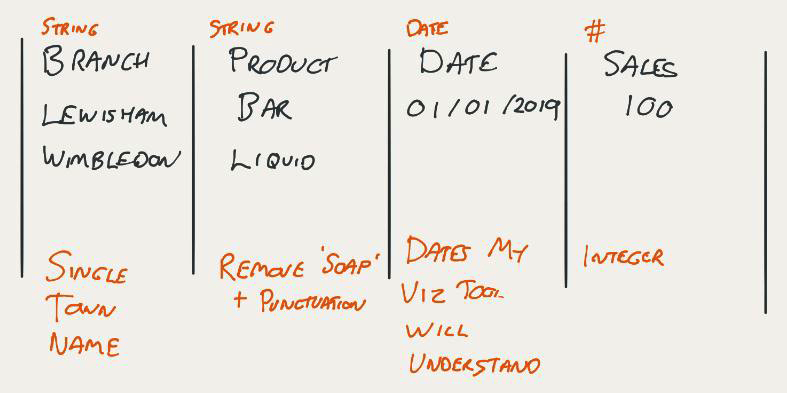 STRING STRING DATE #
BRANCH PRODUCT DATE SALES
LEWISHAM BAR 01/01/2019 100
WIMBLEDON LIQUID
SINGLE
TOWN
NAME
REMOVE 'SOAP'
+ PUNCTUATION
DATES MY
VIZ TOOL
WILL
UNDERSTAND
INTEGER